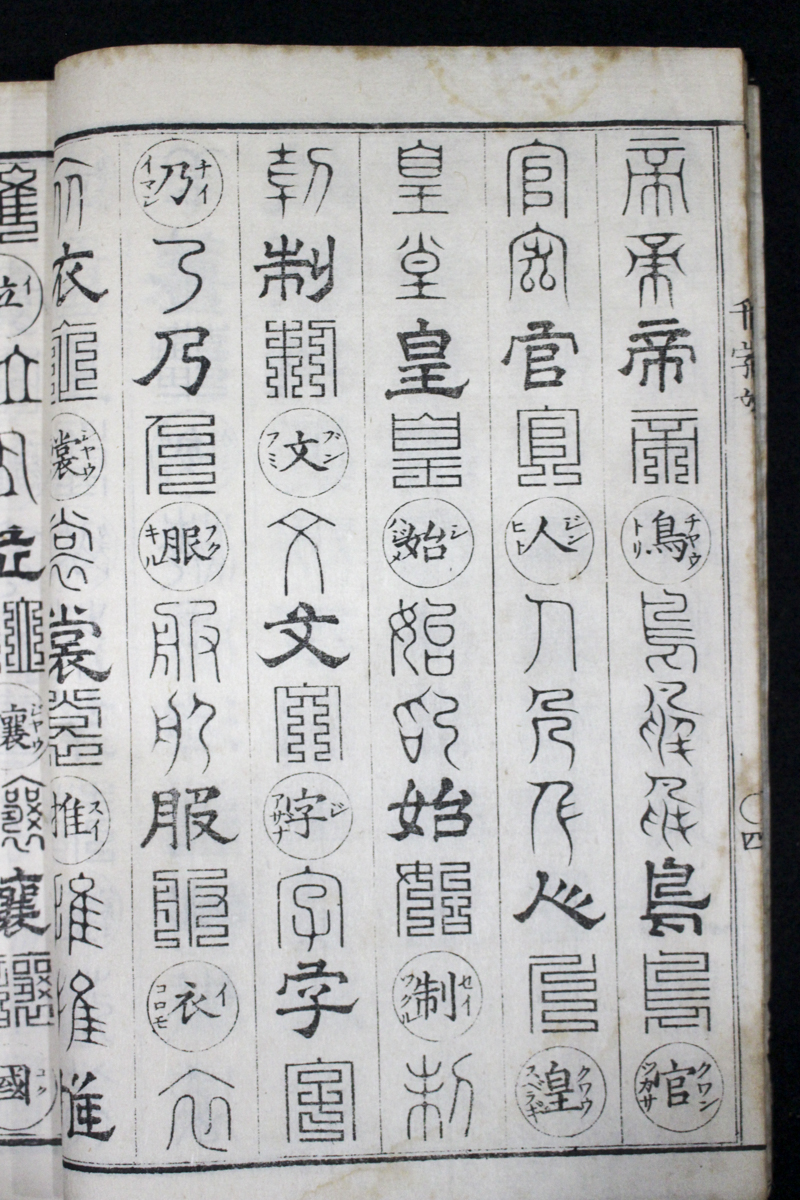 帝帝帝帝鳥チヤウトリ鳥鳥鳥鳥鳥官クワンツカサ
官官官官人ジンヒト人人人人人皇クワウスベラギ
皇皇皇皇始シハジメ始始始始制セイツクル制
制制制文ブンフミ文文文字ジアサナ字字字
乃ナイイマシ乃乃乃服フクキル服服服服衣イコロモ衣
衣衣衣裳シヤウ裳裳裳推スイ推推推
千字文
四
位イ
位
讓ジヤウ
國コク